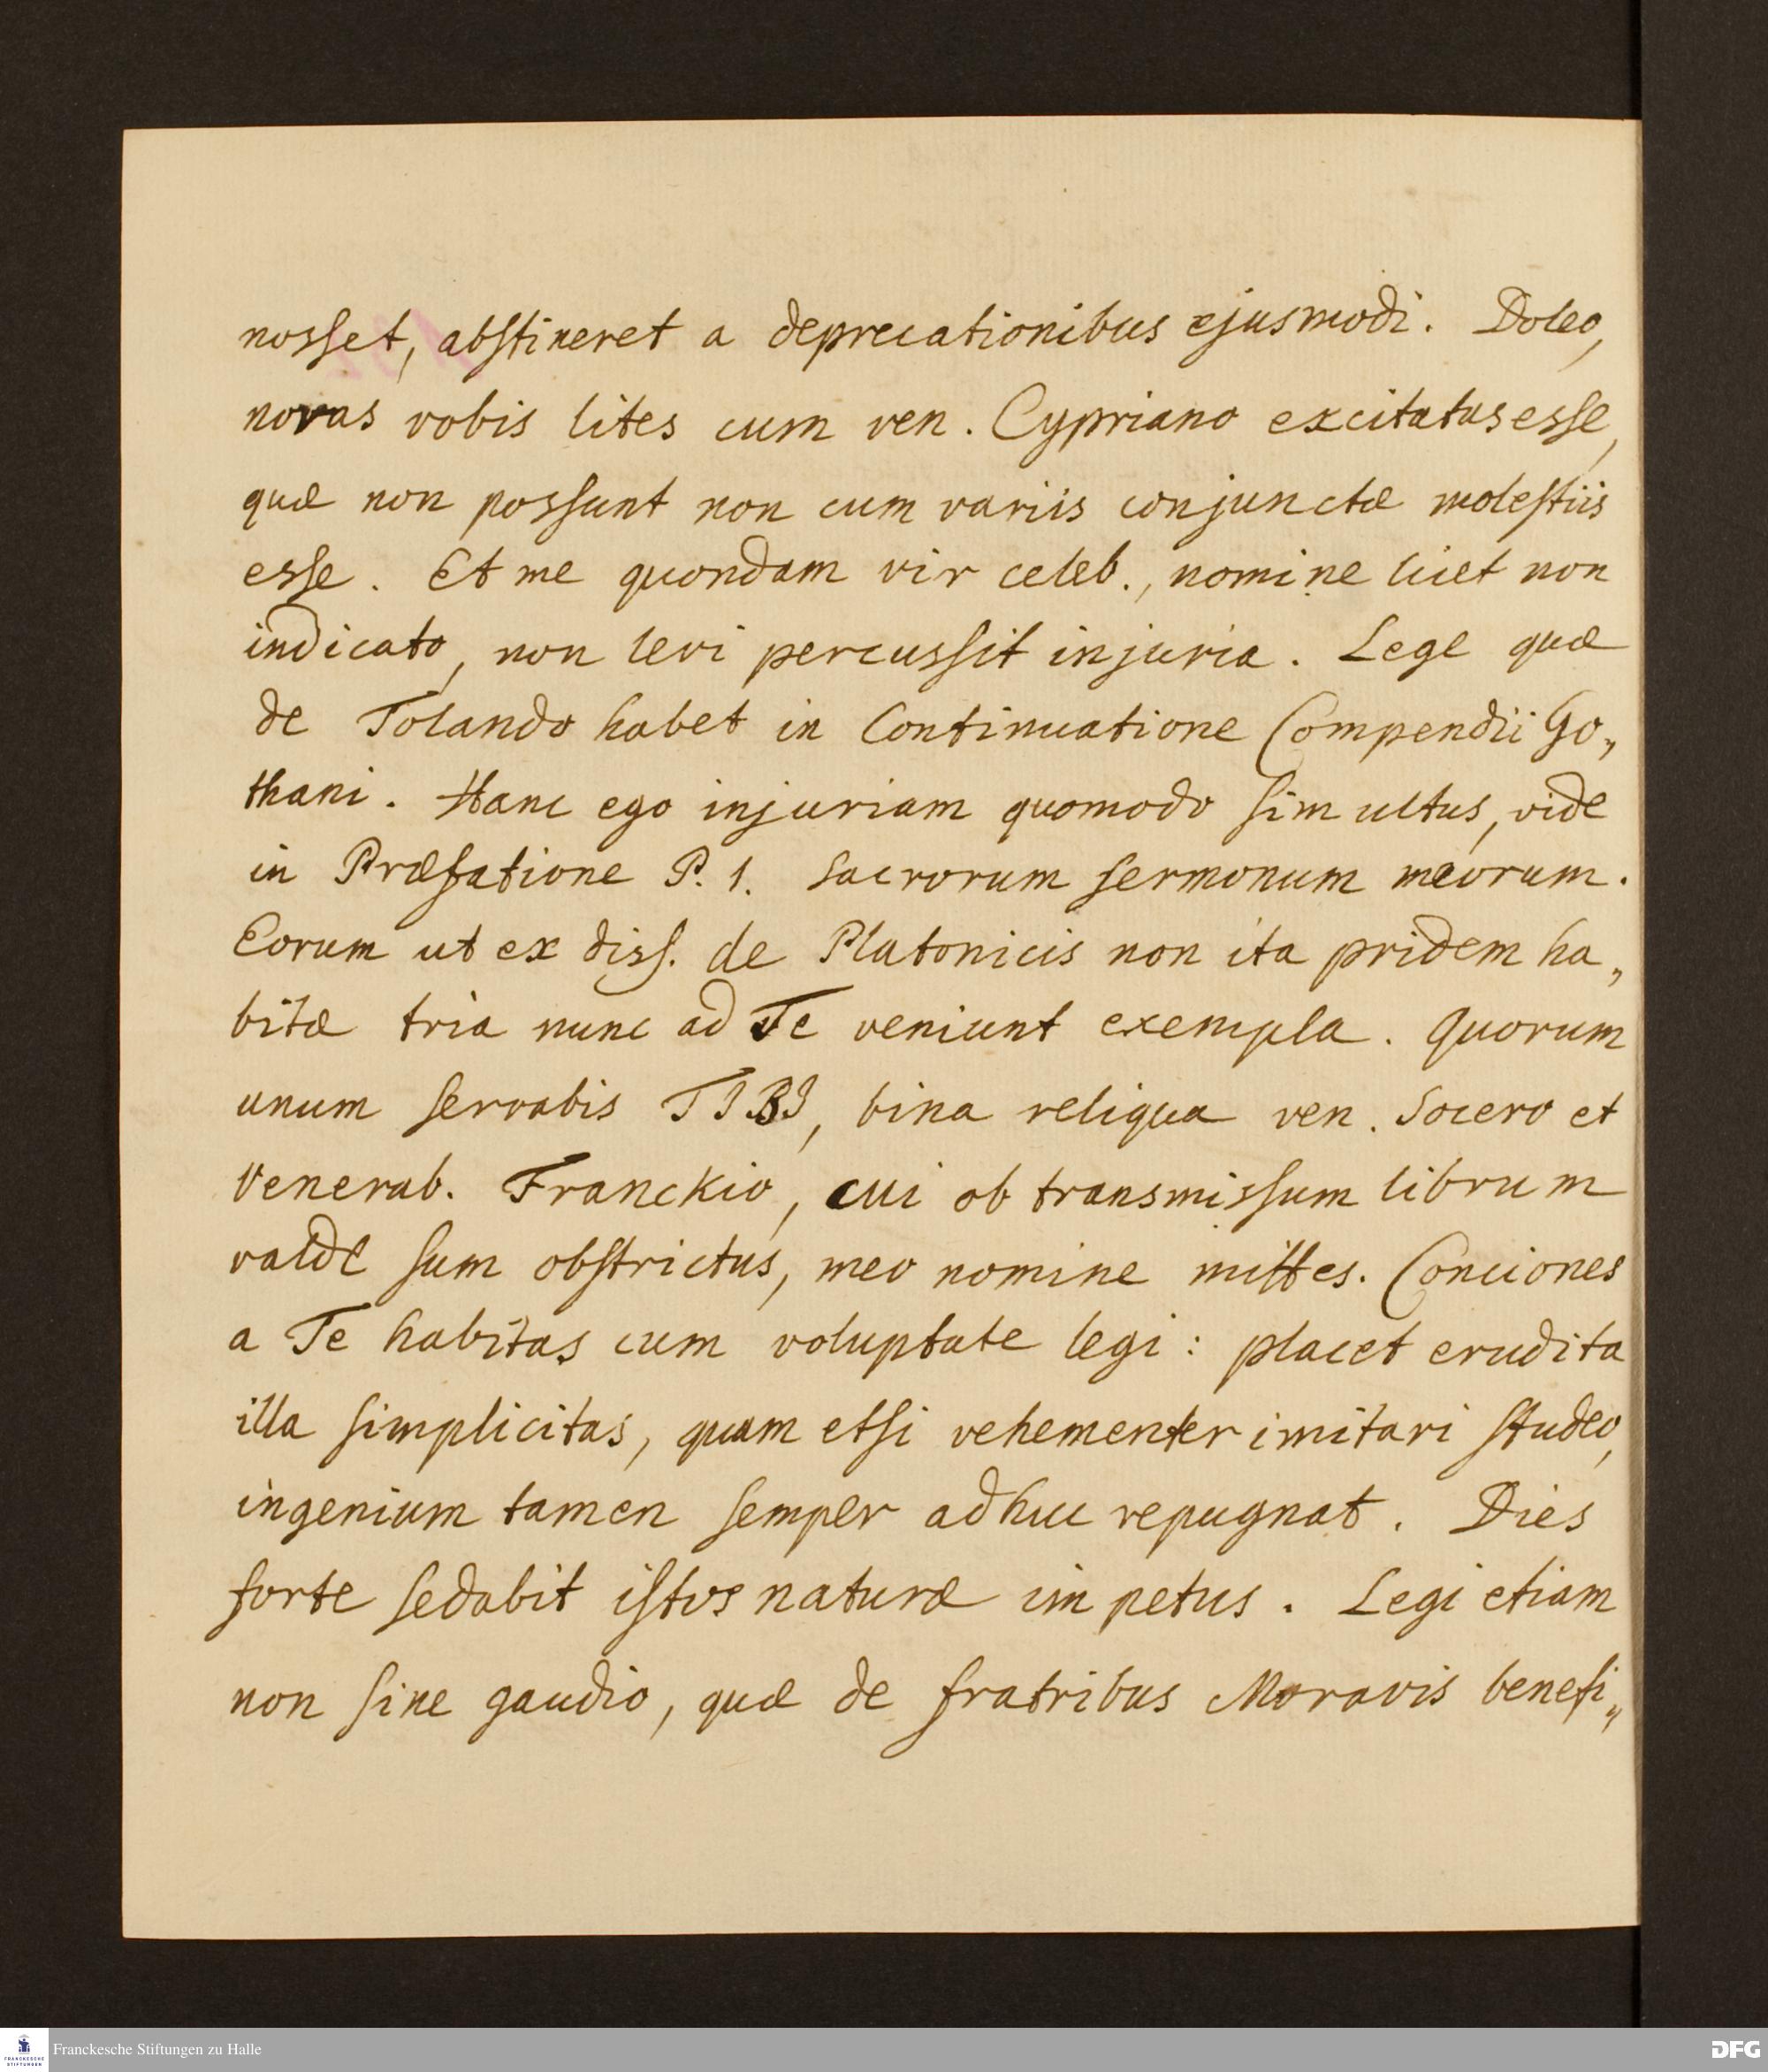 nosset, abstineret a deprecationibus ejusmodi. Doleo,
novas vobis lites cum ven. Cypriano excitatas esse,
quæ non possunt non cum variis conjunctæ molestiis
esse. Et me quondam vir celeb., nomine licet non
indicato, non levi percussit injuria. Lege quæ
de Tolando habet in Continuatione Compendii Go„
thani. Hanc ego injuriam quomodo sim ultus, vide
in Præfatione P. 1. Sacrorum sermonum meorum.
Eorum ut ex diss. de Platonicis non ita pridem ha„
bitæ tria nunc ad Te veniunt exempla. Quorum
unum servabis TIBI, bina reliqua ven. Socero et
Venerab. Franckio, cui ob transmissum librum
valde sum obstrictus, meo nomine mittes. Conciones
a Te habitas cum voluptate legi: placet erudita
illa simplicitas, quam etsi vehementer imitari studeo,
ingenium tamen semper adhuc repugnat. Dies
forte sedabit istos naturæ impetus. Legi etiam
non sine gaudio, quæ de fratribus Moravis benefi„
Franckesche Stiftungen zu Halle
FRANCKESCHE
STIFTUNGEN
DFG